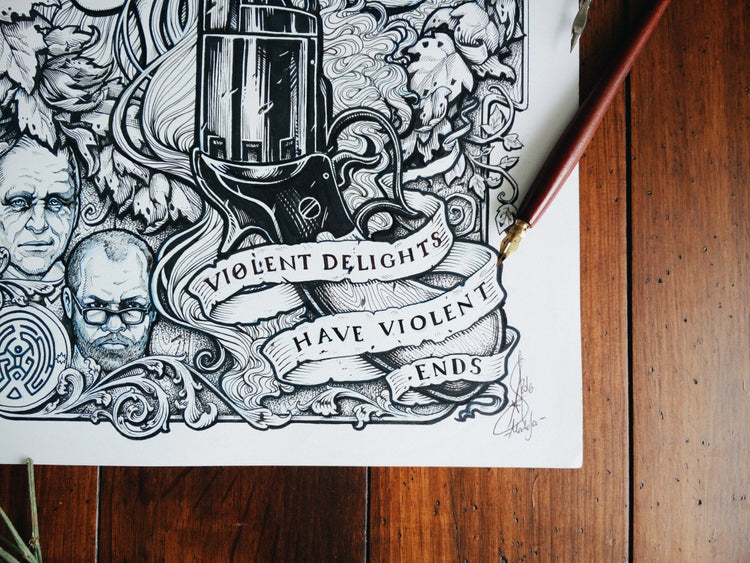 VIOLENT DELIGHTS
HAVE VIOLENT
ENDS